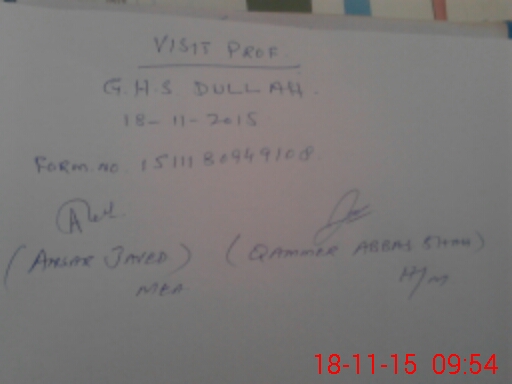 VISIT PROF.
G.H.S DULLAH.
18-11-2015
FORM.NO. 1511180949108
(ANSAR JAVED) (QAMMER ABBAS SHAH)
MEA. H/M
18-11-15 09:54